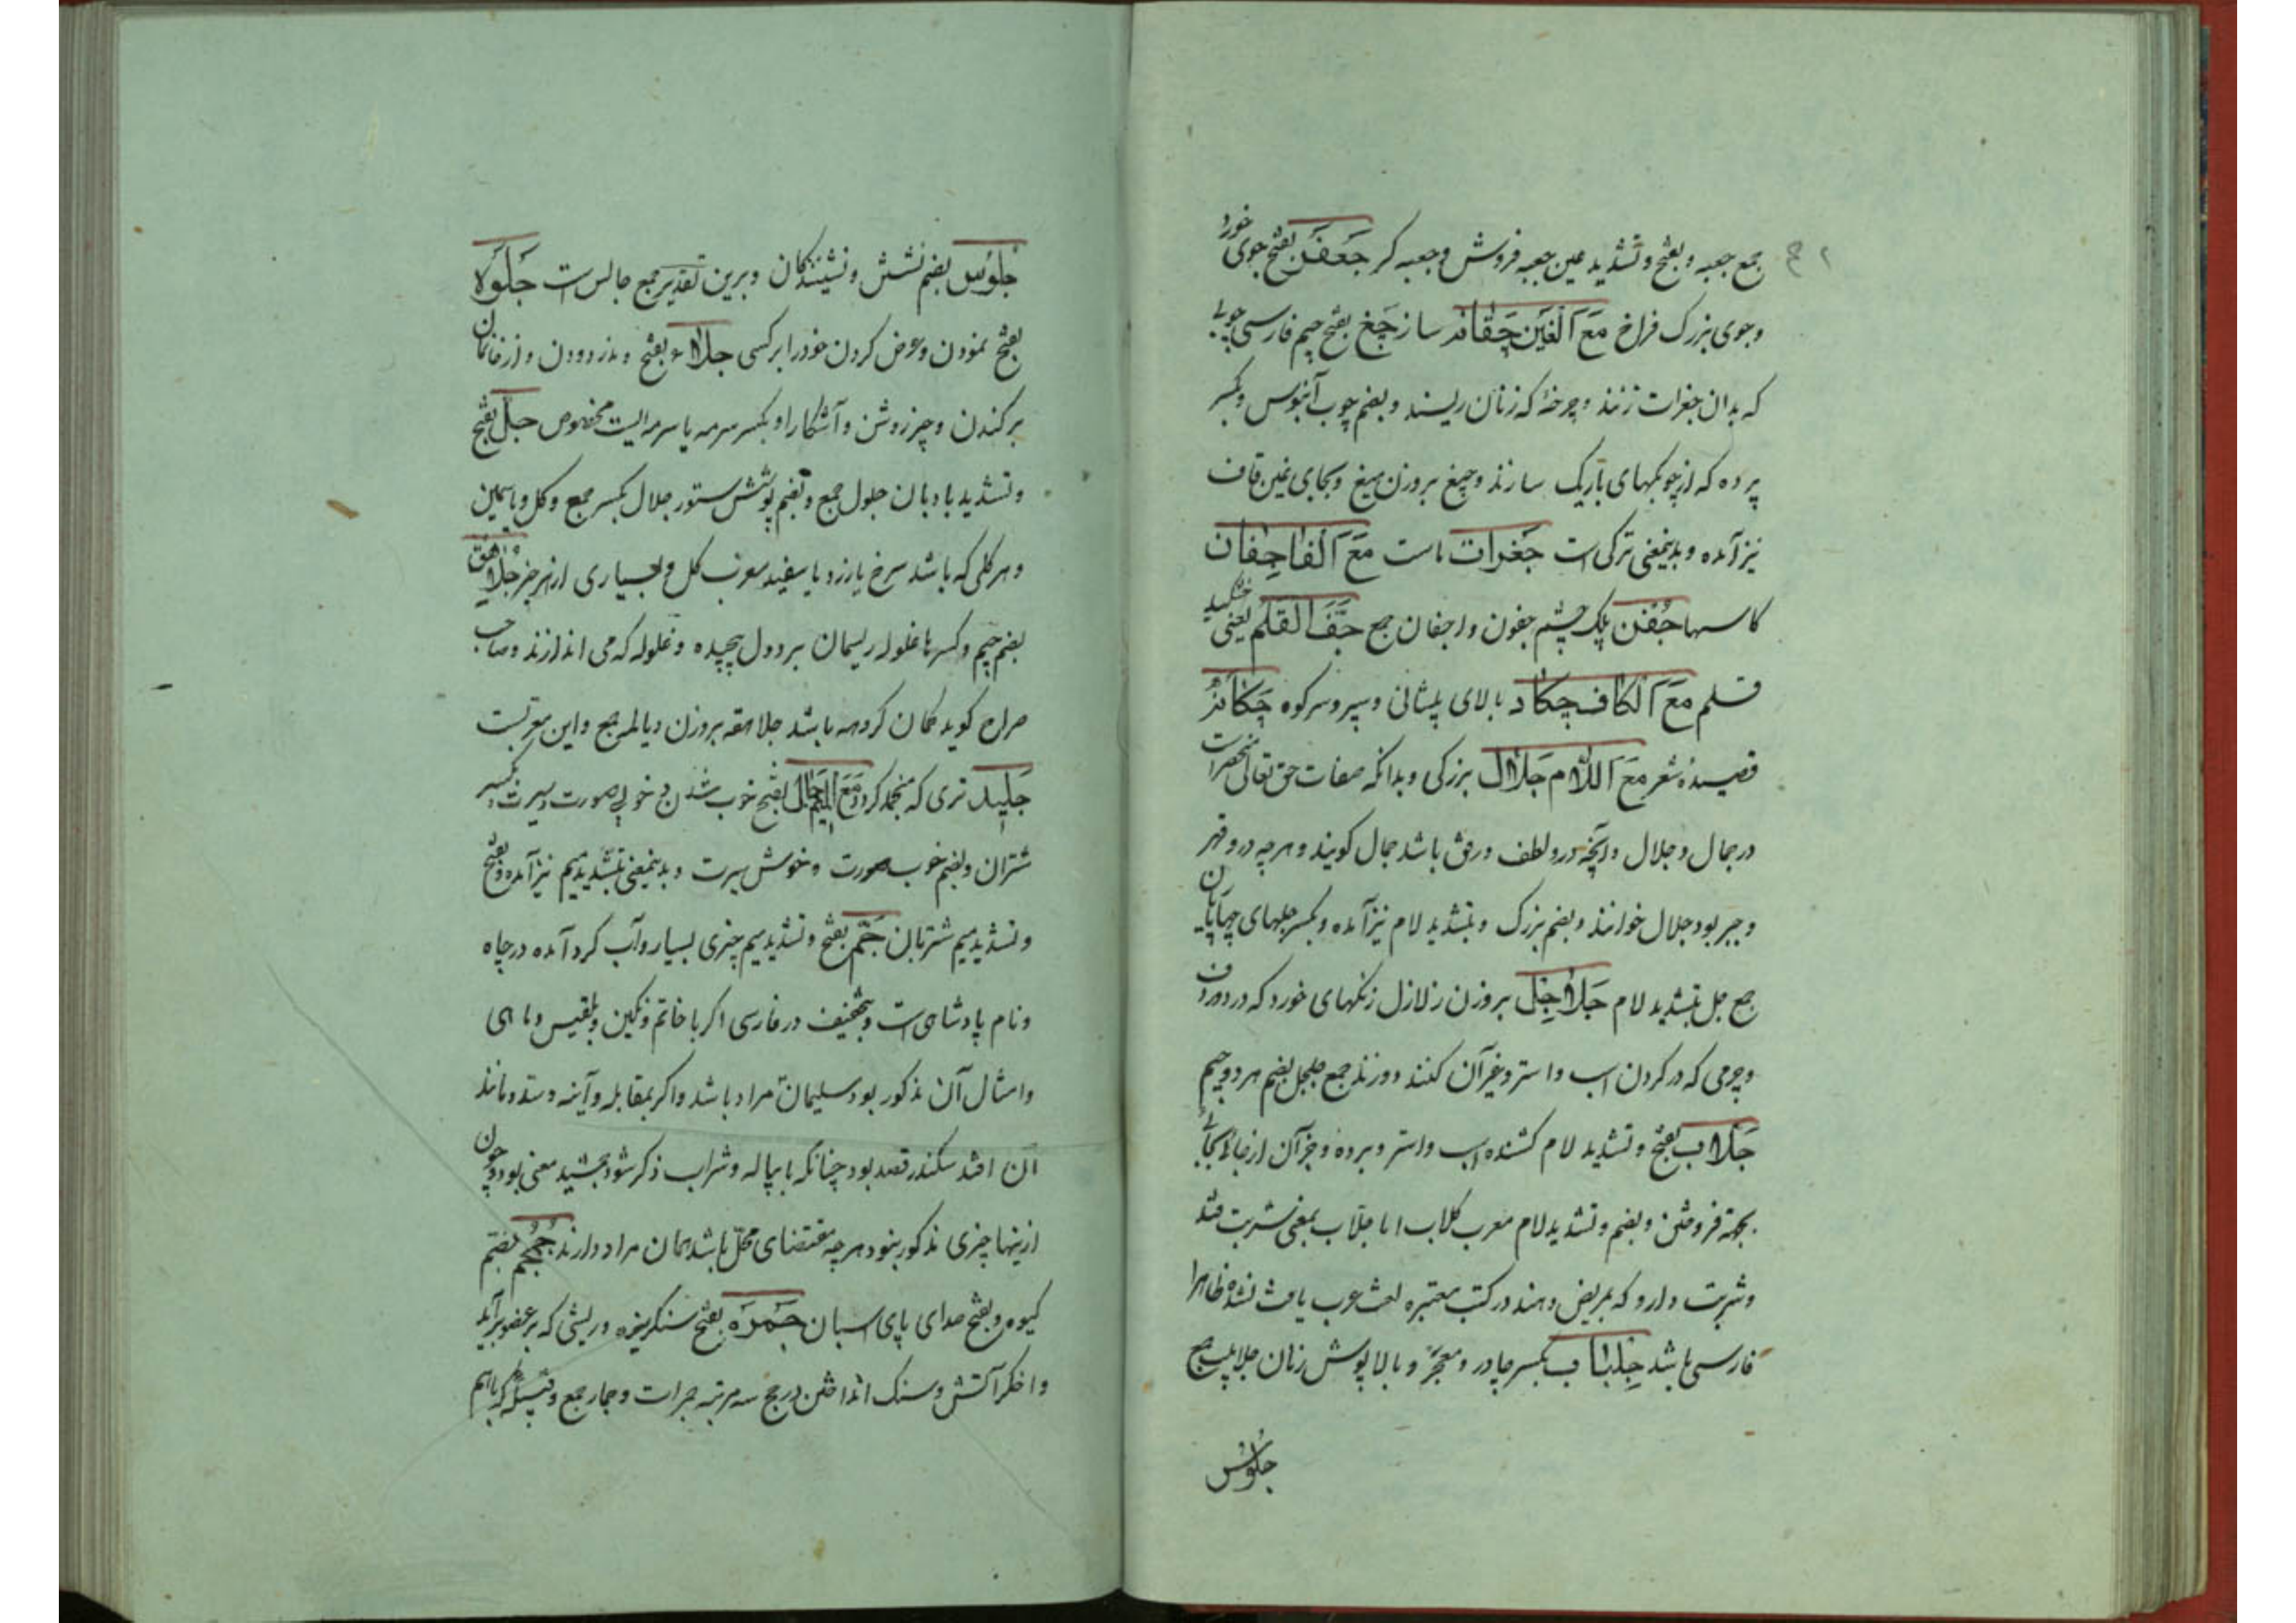 جمع جعبه و بفتح و تشدید عین جعبه فروش و جعبه کر جَعفَر بفتح جوی خورد
و جوی بزرک فراخ مَعَ اَلغَین چَغانه سازچَغ بفتح جیم فارسی چوبی
که بدان جغرات زنند و چرخهٔ که زنان ریسند و بضم چوب آبنوس و بکسر
پرده که از چوبکهای باریک سازند و چیغ بروزن میغ و بجای غین قاف
نیز آمده و بدینمعنی ترکی است جَغرات ماست مَعَ اَلفا جِفان
کاسها جُفن پلک چشم جفون و اجفان جمع جَفَّ القلَم یعنی خشکید
قلم مَعَ اَلکاف چکاد بالای پیشانی و سپر و سر کوه چَکامَهٔ
قصیدهٔ شعر مَعَ اَللّام جَلال بزرکی و بدانکه صفات حق تعالی منحصرات
در جمال و جلال و آنچه درو لطف و رفق باشد جمال کویند و هرچه درو قهر
و جبر بود جلال خوانند و بضم بزرک و بتشدید لام نیز آمده و بکسر جلهای چهارپایان
جمع جل بتشدید لام جَلاجِل بروزن زلازل زنکهای خورد که در دور دف
و چرمی که در کردن اسب و استر و غیر آن کنند دوزند جمع جلجل بضم هر دو جیم
جَلّاب بفتح و تشدید لام کشنده اسب و استر و برده و جز آن از جائی بجائی
بجهته فروختن و بضم و تشدید لام معرب کلاب اما جلّاب بمعنی شربت قند
و شربت دارو که بمریض دهند در کتب معتبره لغت عرب یافت نشده ظاهرا
فارسی باشد جِلباب بکسر چادر و معجر و بالاپوش زنان جلابیب جمع
جلوُس
جُلوُس بضم نشستن و نشینندکان و برین تقدیر جمع جالس است جَلوَه
بفتح نمودن و عرض کردن خود را بر کسی جلاء بفتح و مد زدودن و از خانمان
برکندن و چیز روشن و آشکارا و بکسر سرمه یا سرمه ایست مخصوص جلّ بفتح
و تشدید بادبان جلول جمع و بضم پوشش ستور جلال بکسر جمع و کل و یاسمین
و هر کلی که باشد سرخ یا زرد یا سفید معرب کل و بسیاری از هر چیز جُلاهِق
بضم جیم و کسر ها غلوله ریسمان بر دول پیچیده و غلوله که می اندازند و صاحب
صراح کوید کمان کروهه باشد جلاهقه بروزن دیالمه جمع و این معربست
جَلید تری که منجمد کردد مَعَ المیم جمال بفتح خوب شدن و خوبی صورت و سیرت و بکسر
شتران و بضم خوب صورت و خوش سیرت و بدینمعنی بتشدید میم نیز آمده و بفتح
و تشدید میم شتربان جَمّ بفتح و تشدید میم چیزی بسیار و آب کرد آمده در چاه
و نام پادشاهی است و بتخفیف در فارسی اکر با خاتم و نکین و بلقیس و ماهی
و امثال آن مذکور بود سلیمان مراد باشد و اکر بمقابله و آینه و سد و مانند
آن افتد سکندر قصد بود چنانکه با پیاله و شراب ذکر شود جمشید معنی بود و چون
ازینها چیزی مذکور بنود هرچه مقتضای محل باشد همان مراد دارند جُمجُم بضم
کیوه و بفتح صدای پای اسبان جَمرَه بفتح سنکریزه و ریشی که بر عضو برآید
و اخکر آتش و سنک انداختن در حج سه مرتبه جمرات و جمار جمع و قبیلهٔ که باهم